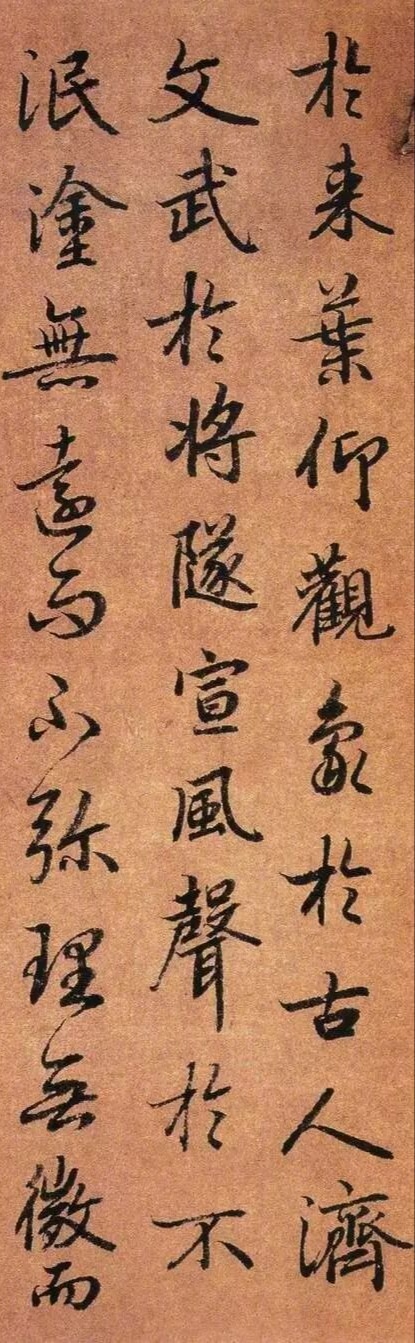 於来葉仰觀象於古人濟
文武於将隧宣風聲於不
泯塗無遠而不弥理無微而